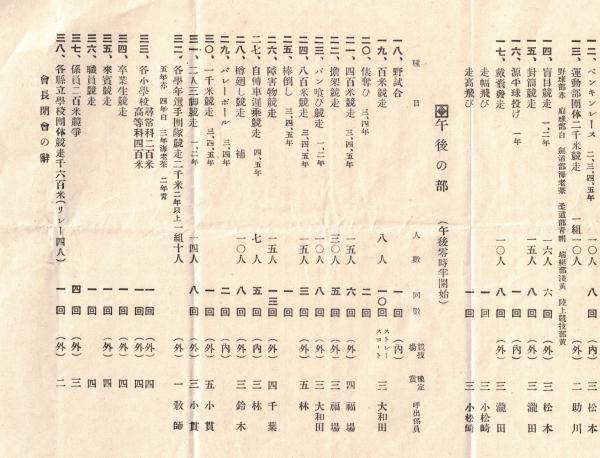 一二、ペンキンレース 二、三、四、五年 一〇人 八回 (外) 三 松本
一三、運動部團体二千米競走 一組一〇人 一回 (外) 二 助川
野球部赤 庭球部白 劍道部海老茶 柔道部靑鼠 端艇部淺黄 陸上競技部黄
一四、盲目競走 一、二年 一六人 六回 (外) 三 松本
一五、封筒競走 一五人 八回 (外) 三 瀧田
一六、源平球投げ 一年 一回 (外)
一七、戴嚢競走 一〇人 八回 (外) 三 瀧田
走幅飛び 一回 三 小松崎
走高飛び 一回 三 小松崎
午後の部 (午後零時半開始)
種目 人數 回數 競技場 鑑定賞 呼出係員
一八、野試合 一回 (内)
一九、百米競走 八人 一〇回 ストレートコート 三 大和田
二〇、俵奪ひ 三、四年 二回
二一、四百米競走 二、三、四、五年 一五人 六回 (外) 四 福場
二二、擔架競走 三〇人 二回 (外) 三 福場
二三、パン喰ひ競走 一、二年 一〇人 八回 (外) 三 大和田
二四、八百米競走 三、四、五年 一五人 三回 (外) 五 林
二五、棒倒し 三、四、五年 一回
二六、障害物競走 一五人 一三回 (外) 四 千葉
二七、自轉車遲乘競走 四、五年 七人 五回 (内) 三 林
二八、樽廻し競走 補 一〇人 五回 (外) 三 鈴木
二九、バレーボール 三、四年 二回 (内)
三〇、一千米競走 三、四、五年 五回 (外) 五 小貫
三一、二人三脚競走 一、二年 一四人 八回 (外) 三 小貫
三二、各學年選手團隊競走二千米 二年以上 一組十人 (外) 一 敎師
五年赤 四年白 三年海老茶 二年靑
三三、各小學校 尋常科二百米 高等科四百米 一回 一回 (外) (外) 四 四
三四、卒業生競走 一回 (外) 四
三五、來賓競走 一回 (外) 四
三六、職員競走 一回 四
三七、係員二百米競爭 四回 (外) 三
三八、各縣立學校團体競走千六百米(リレー四人) 一回 (外) 二
會長閉會の辭